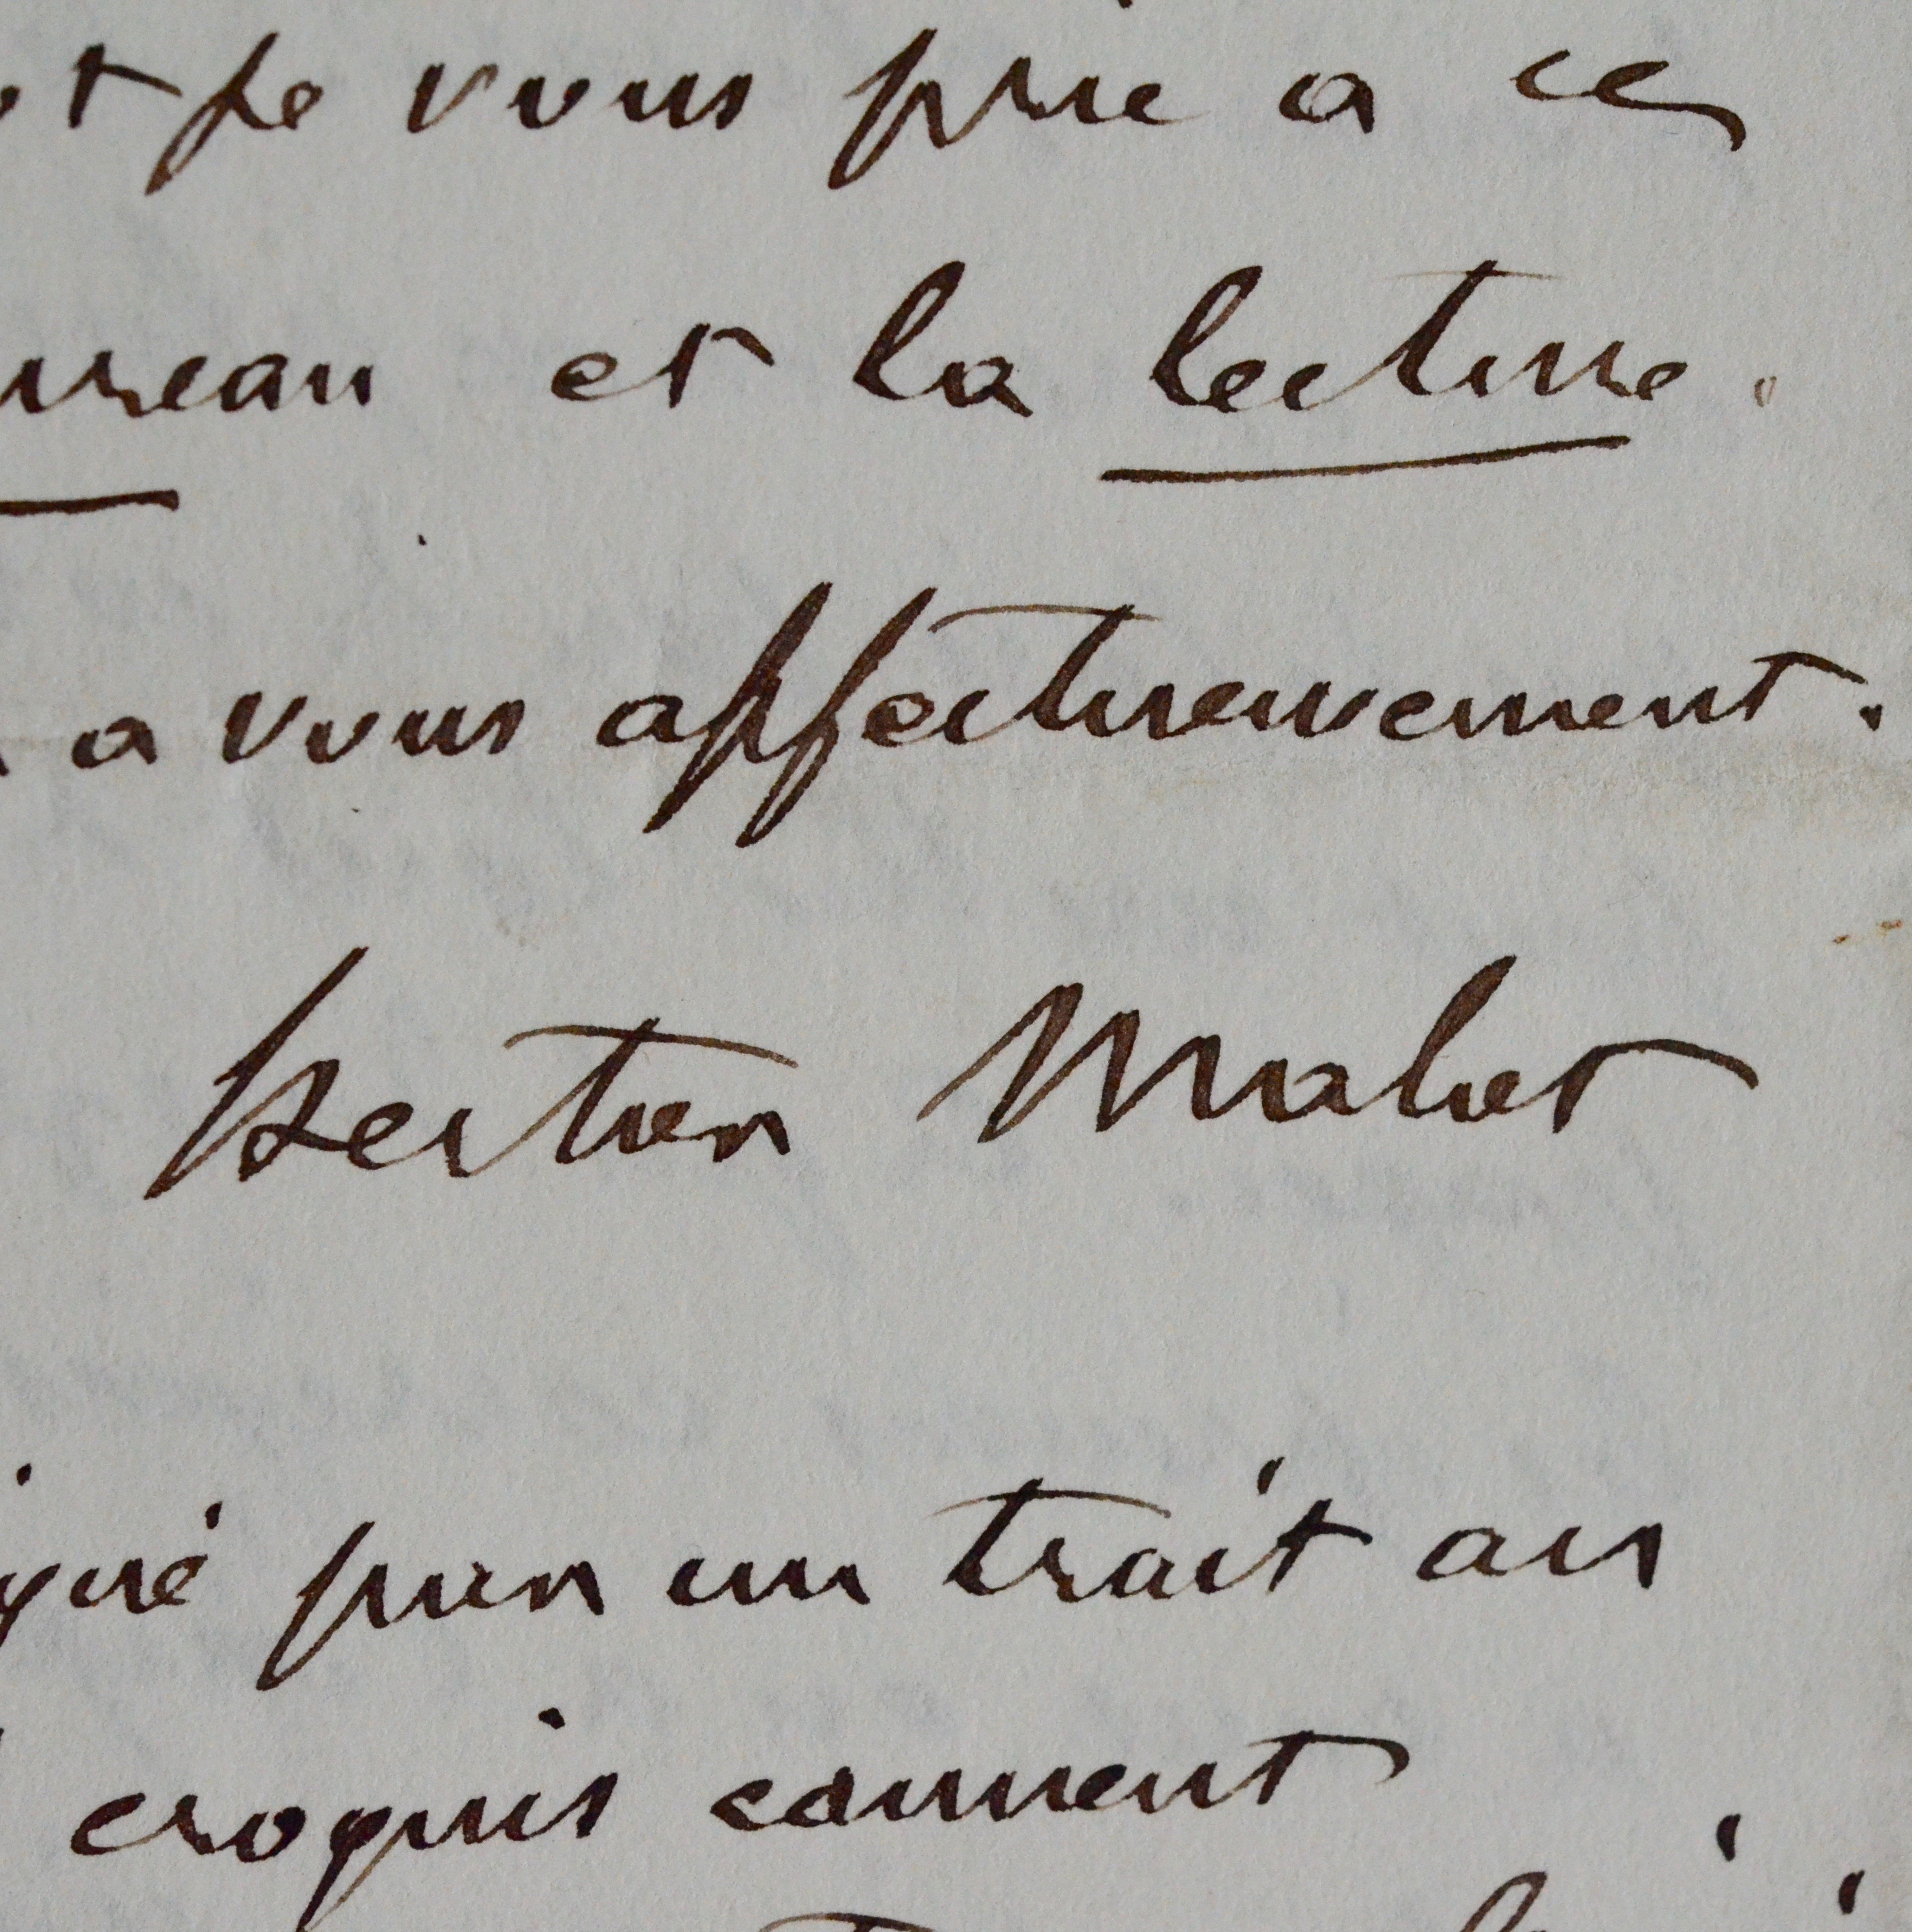 t je vous prie a ce
ureau et la lecture.
a vous affectueusement.
Hector Malot
par un trait au
croquis comment